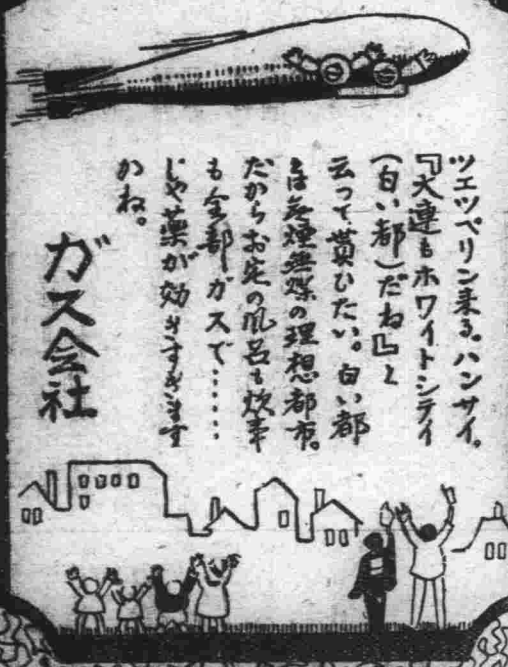 ツエツペリン来る。ハンサイ。
『大連もホワイトシテイ
（白い都）だね』と
云つて貰ひたい。白い都
とは無煙無煤の理想都市。
だからお宅の風呂も炊事
も全部ガスで……
じや薬が効きすぎます
かね。
ガス会社